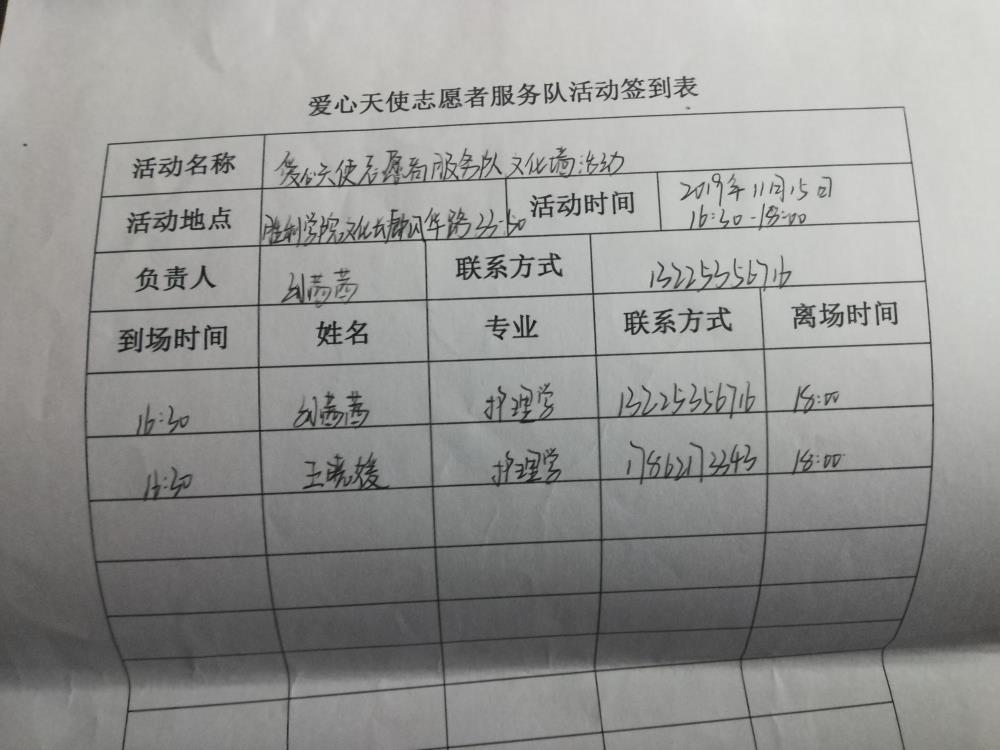 爱心天使志愿者服务队活动签到表
活动名称 爱心天使志愿者服务队文化墙活动
活动地点 胜利学院文化长廊 活动时间 2019年11月15日
16:30-18:00
负责人 刘茜茜 联系方式 13225356716
到场时间 姓名 专业 联系方式 离场时间
16:30 刘茜茜 护理学 13225356716 18:00
16:30 王晓媛 护理学 17862173343 18:00